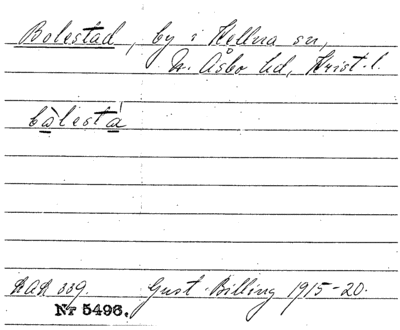 Bolestad, by i Hellna sn,
N. Åsbo hd, Krist. l.
bòlestá
RAÄ 339. Gust. Billing 1915-20.
Nr 5496.